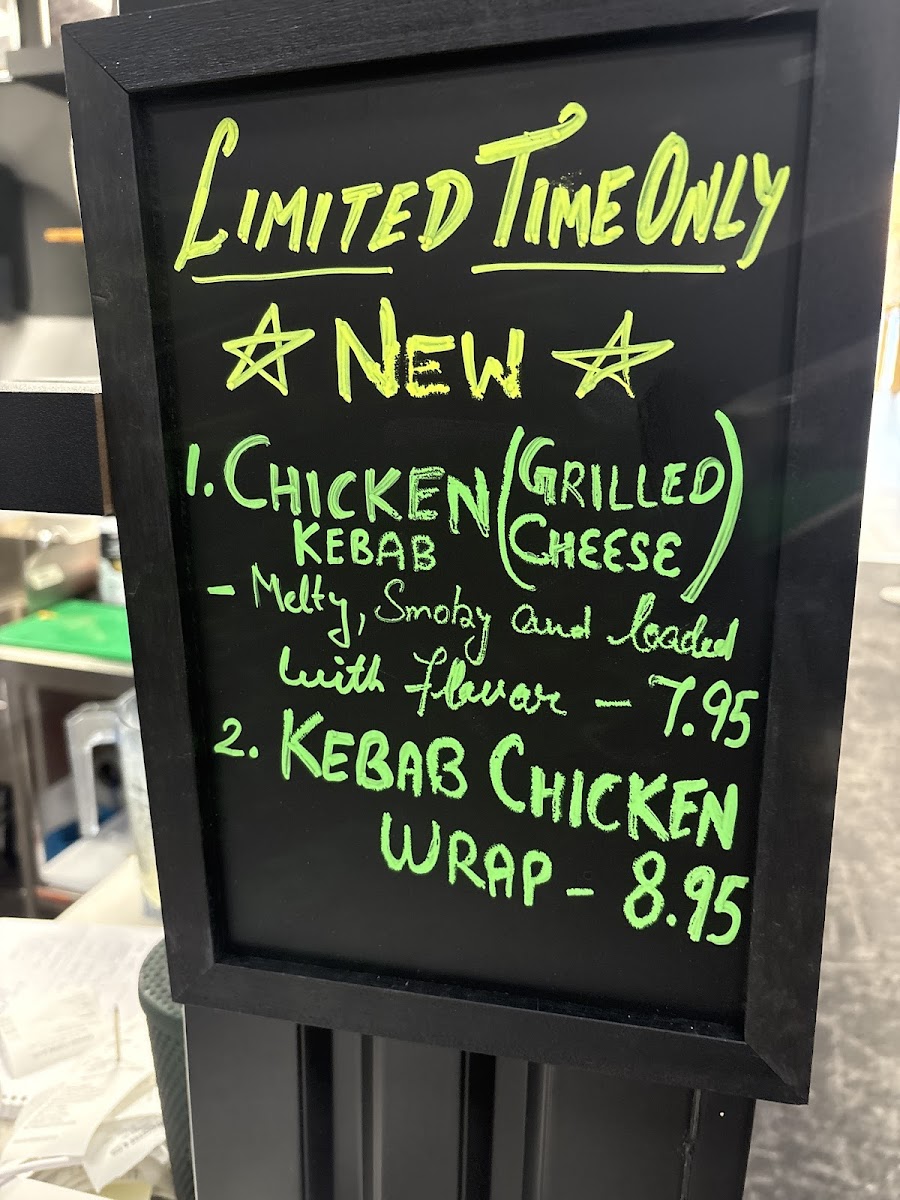 LIMITED TIME ONLY
☆ NEW ☆
1. CHICKEN (GRILLED
KEBAB CHEESE)
- Melty, Smoky and loaded
with flavor - 7.95
2. KEBAB CHICKEN
WRAP - 8.95